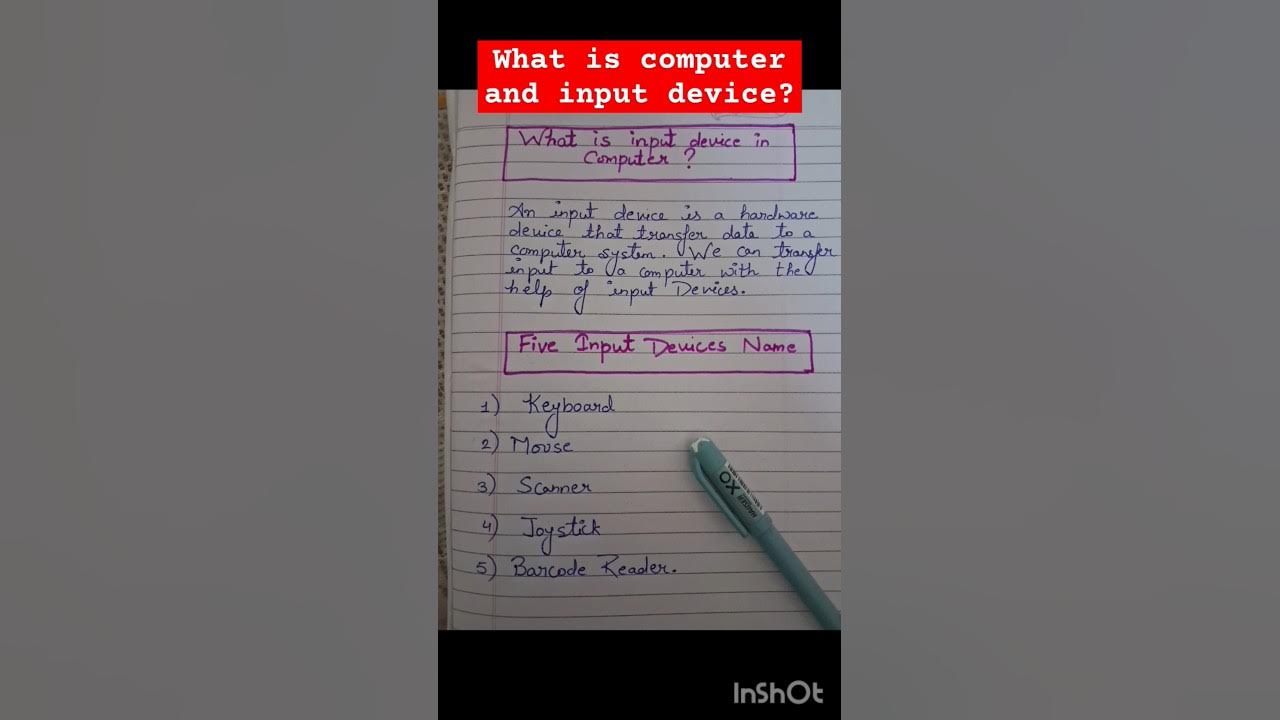 What is computer
and input device?
What is input device in
Computer ?
An input device is a hardware
device that transfer data to a
computer system. We can transfer
input to a computer with the
help of input Devices.
Five Input Devices Name
1) Keyboard
2) Mouse
3) Scanner
4) Joystick
5) Barcode Reader.
XO
InShOt